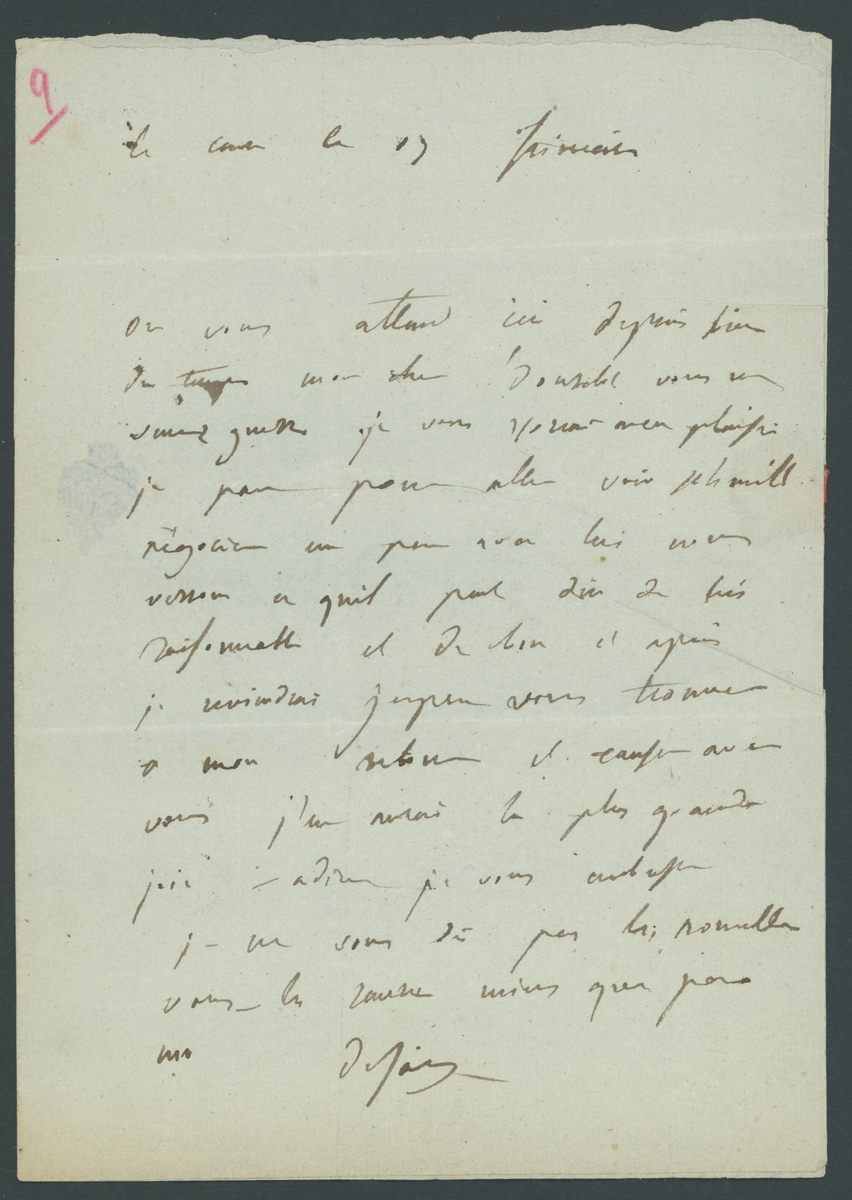 9
le caire le 19 frimaire
on vous attend ici depuis bien
du temps mon cher vous ne
venez guere je vous verrai avec plaisir
je pour aller voir
negocier un peu avec lui nous
verrons ce quil peut dire de
raisonnable et de bon et apres
je reviendrai jespere vous trouver
a mon retour et causer avec
vous j'en aurai la plus grande
joie – adieu je vous embrasse
je ne vous dis pas les nouvelles
vous les mieux que
moi desaix